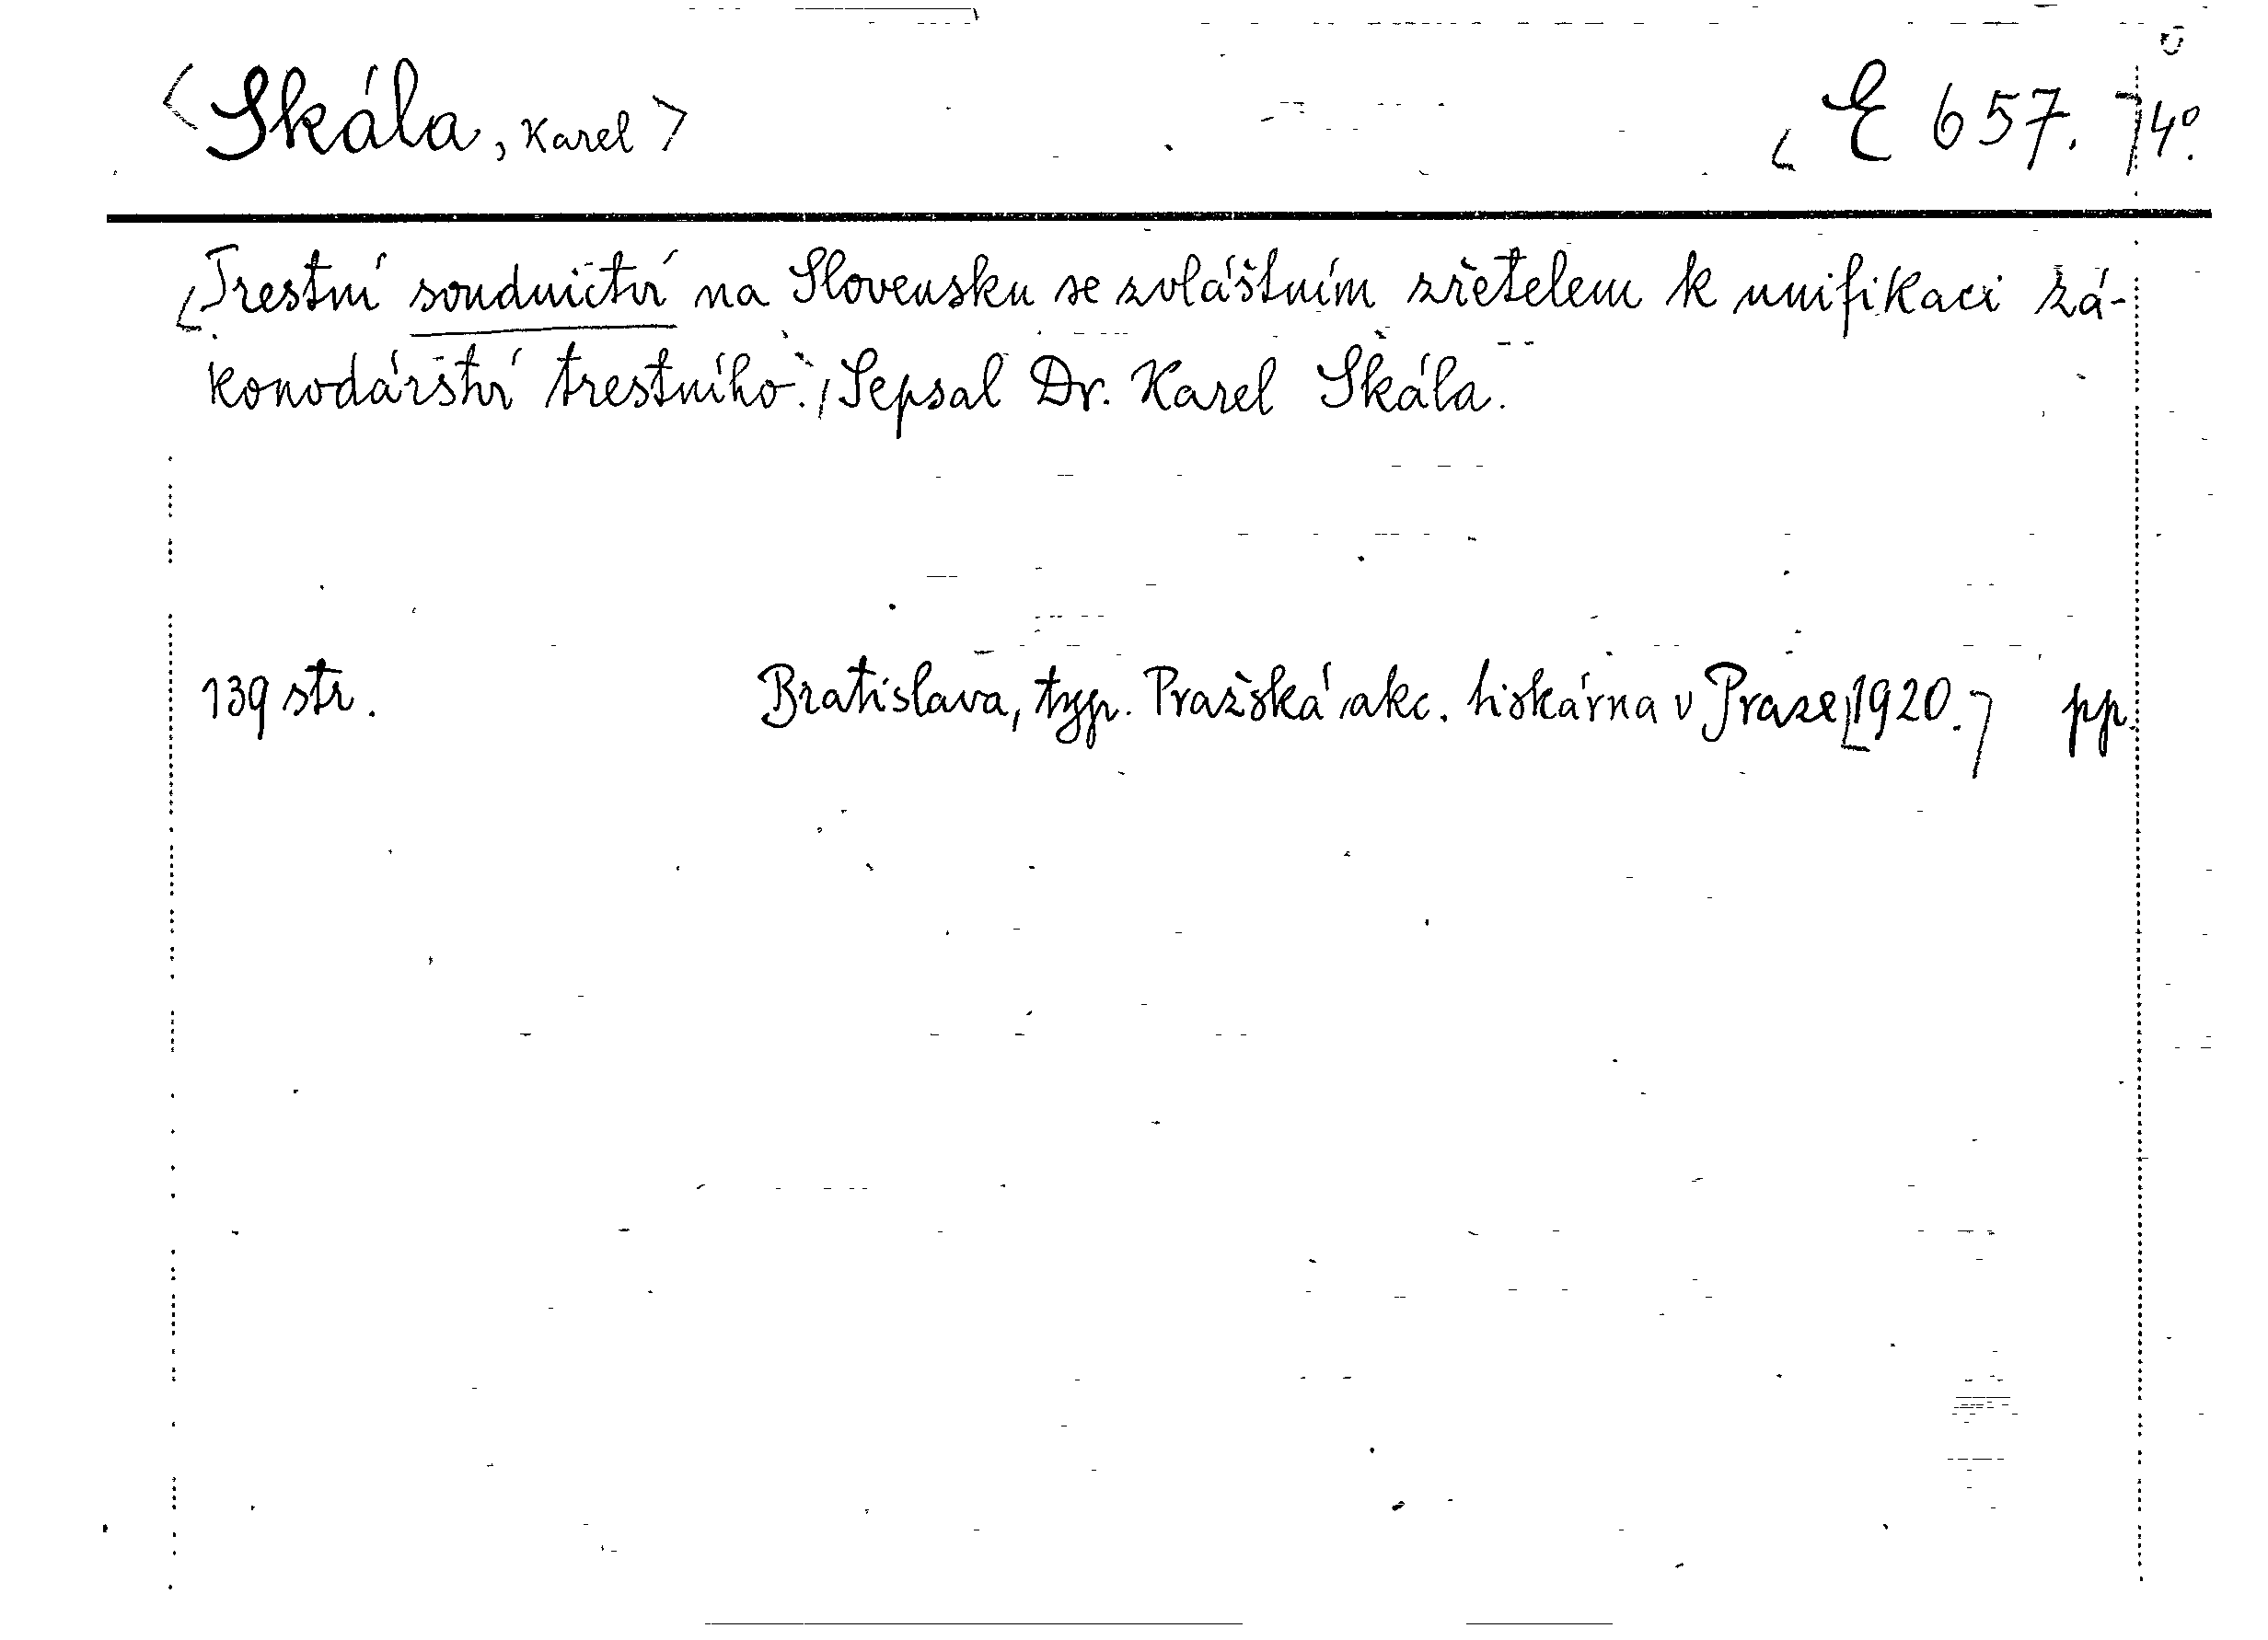 <Skála, Karel> E 657. 4°.
Trestní soudnictví na Slovensku se zvláštním zřetelem k unifikaci zá-
konodárství trestního. Sepsal Dr. Karel Skála.
139 str. Bratislava, typ. Pražská akc. tiskárna v Praze, 1920. pp.